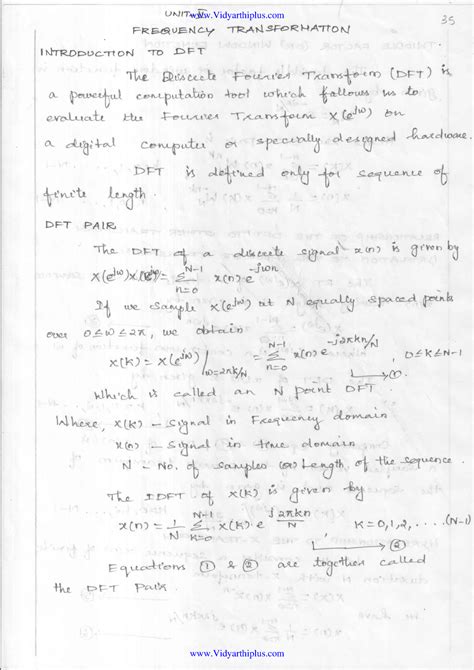 www.Vidyarthiplus.com
UNIT-II
35
FREQUENCY TRANSFORMATION
INTRODUCTION TO DFT
The Discrete Fourier Transform (DFT) is
a powerful computation tool which follows us to
evaluate the Fourier Transform X(e^jω) on
a digital computer or specially designed hardware.
DFT is defined only for sequence of
finite length.
DFT PAIR
The DFT of a discrete signal x(n) is given by
X(e^jω) = Σ_{n=0}^{N-1} x(n) e^{-jωn}
If we sample X(e^jω) at N equally spaced points
over 0≤ω≤2π, we obtain
X(k) = X(e^jω)|_{ω=2πk/N} = Σ_{n=0}^{N-1} x(n) e^{-j2πkn/N}, 0≤k≤N-1
→ ①
Which is called an N point DFT.
Where, X(k) - Signal in Frequency domain
x(n) - Signal in time domain
N - No. of samples (or) Length of the sequence.
The IDFT of X(k) is given by
x(n) = 1/N Σ_{k=0}^{N-1} X(k) e^{j2πkn/N} K=0,1,2,....(N-1)
→ ②
Equations ① & ② are together called
the DFT Pair.
www.Vidyarthiplus.com